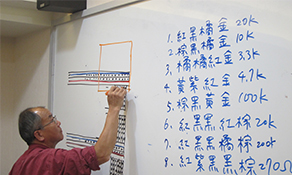 1. 紅黑橘金 20K
2. 棕黑橘金 10K
3. 橘橘紅金 3.3K
4. 黃紫紅金 4.7K
5. 棕黑黃金 100K
6. 紅黑黑紅棕 20K
7. 紅黑黑橘棕 200K
8. 紅紫黑黑棕 270Ω